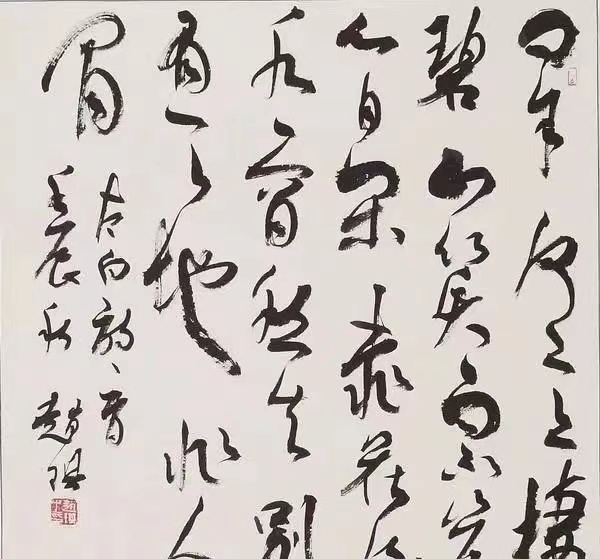 問余何意棲
碧山笑而不答
心自閑桃花流
水窅然去別
有天地非人
間
太白詩一首
壬辰秋 趙